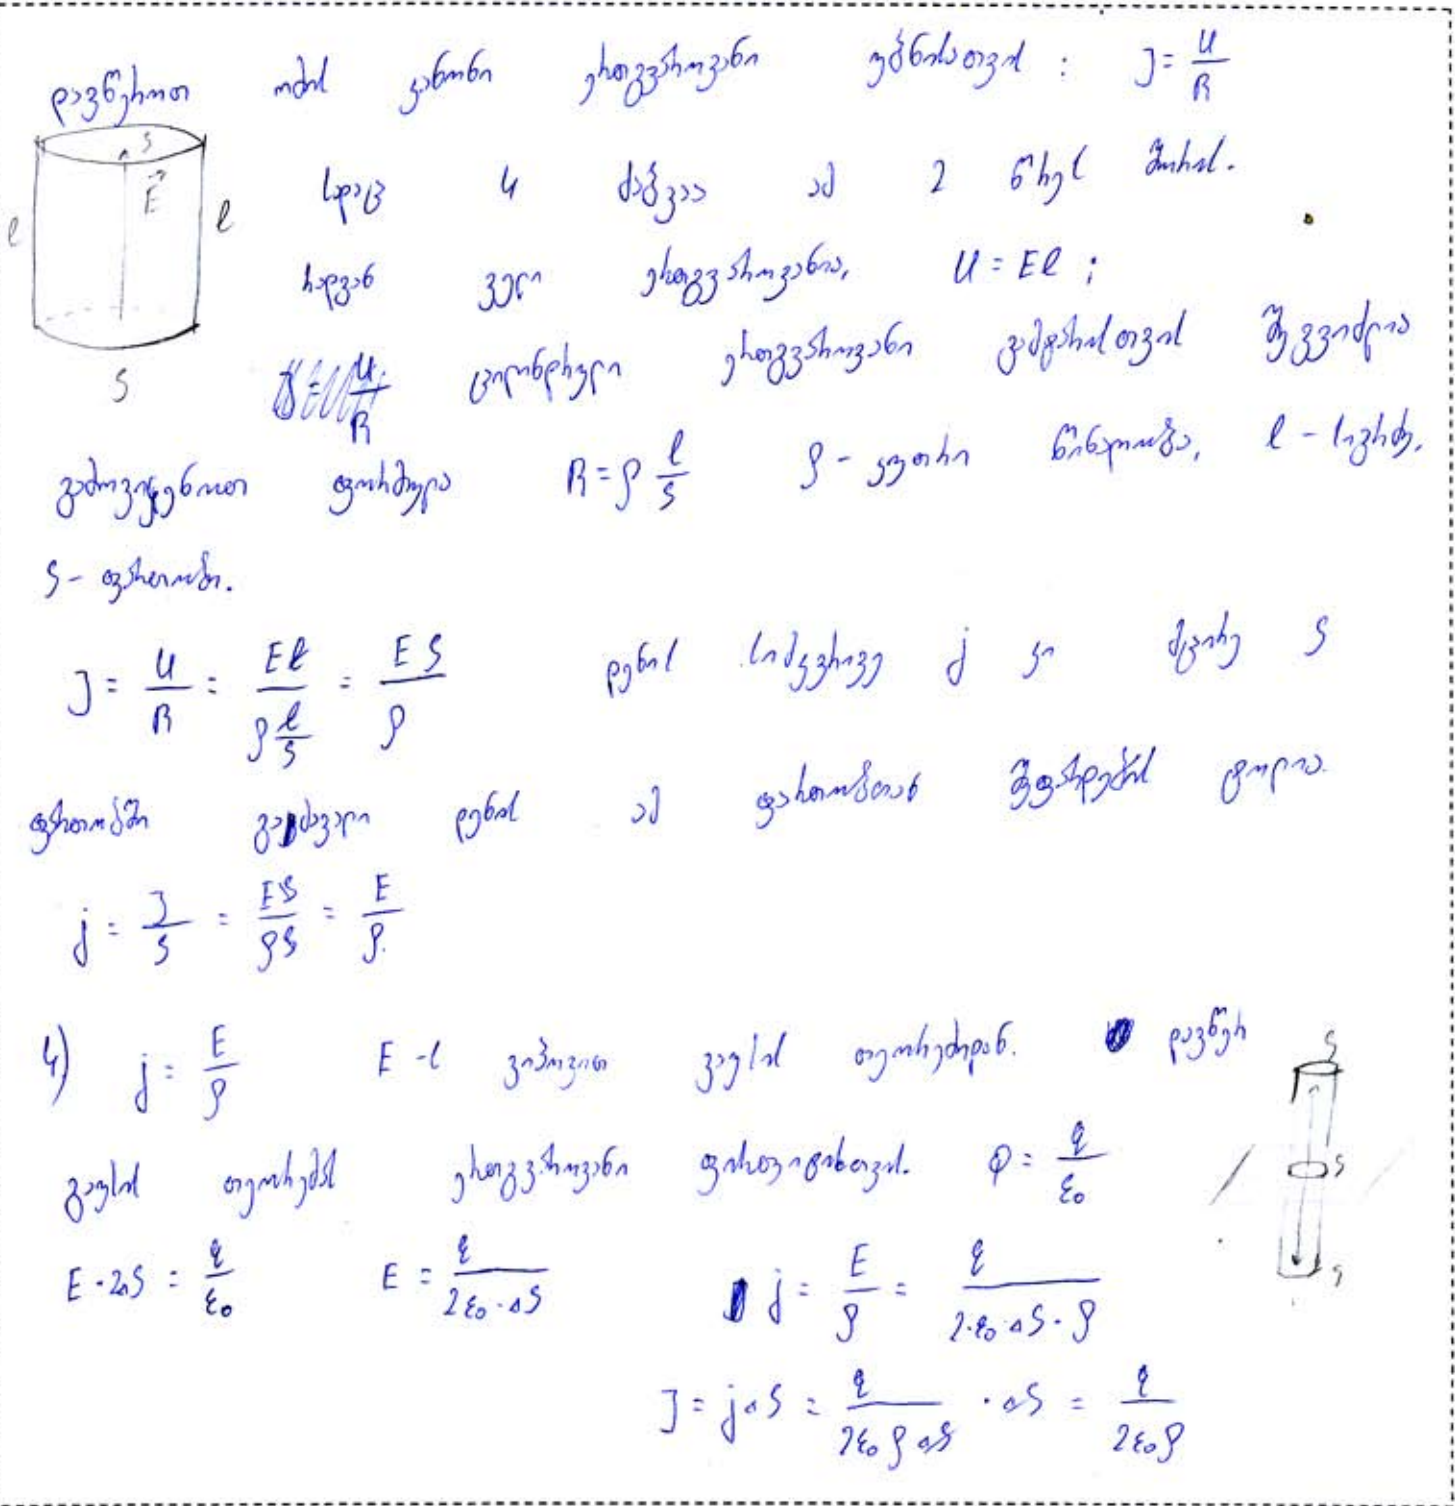 დავწეროთ ომის კანონი ერთგვაროვანი უბნისათვის : J = U/R
S
E⃗
l l
S
სადაც U ძაბვაა ამ 2 წრეს შორის.
რადგან ველი ერთგვაროვანია, U = El ;
ცილინდრული ერთგვაროვანი გამტარისთვის შეგვიძლია
გამოვიყენოთ ფორმულა R = ρ l/S ρ - კუთრი წინაღობა, l - სიგრძე,
S - ფართობი.
J = U/R = El/(ρ l/S) = ES/ρ დენის სიმკვრივე j კი მცირე S
ფართობში გამავალი დენის ამ ფართობთან შეფარდების ტოლია.
j = J/S = ES/ρS = E/ρ.
4) j = E/ρ E-ს ვიპოვით გაუსის თეორემიდან. დავწერ
გაუსის თეორემას ერთგვაროვანი ფირფიტისთვის. Φ = q/ε₀
S
S
S
E · 2ΔS = q/ε₀ E = q/(2ε₀ · ΔS) j = E/ρ = q/(2·ε₀·ΔS·ρ)
J = jΔS = q/(2ε₀ρΔS) · ΔS = q/(2ε₀ρ)